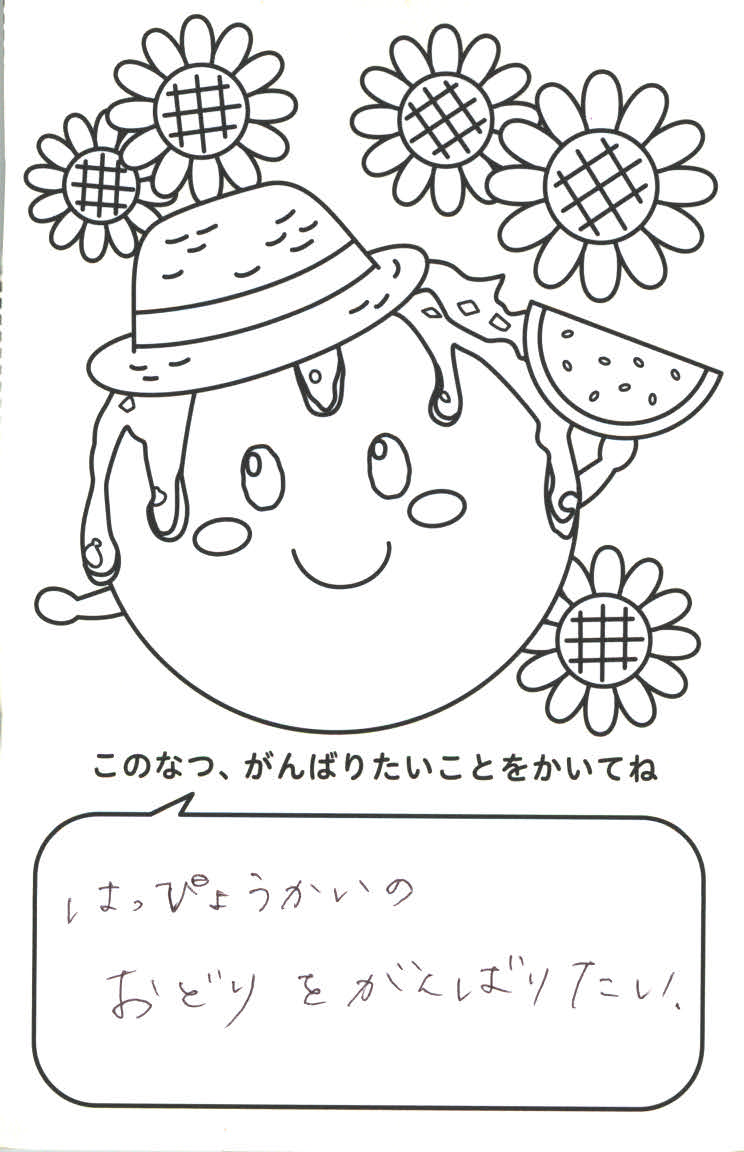 このなつ、がんばりたいことをかいてね
はっぴょうかいの
おどりをがんばりたい、